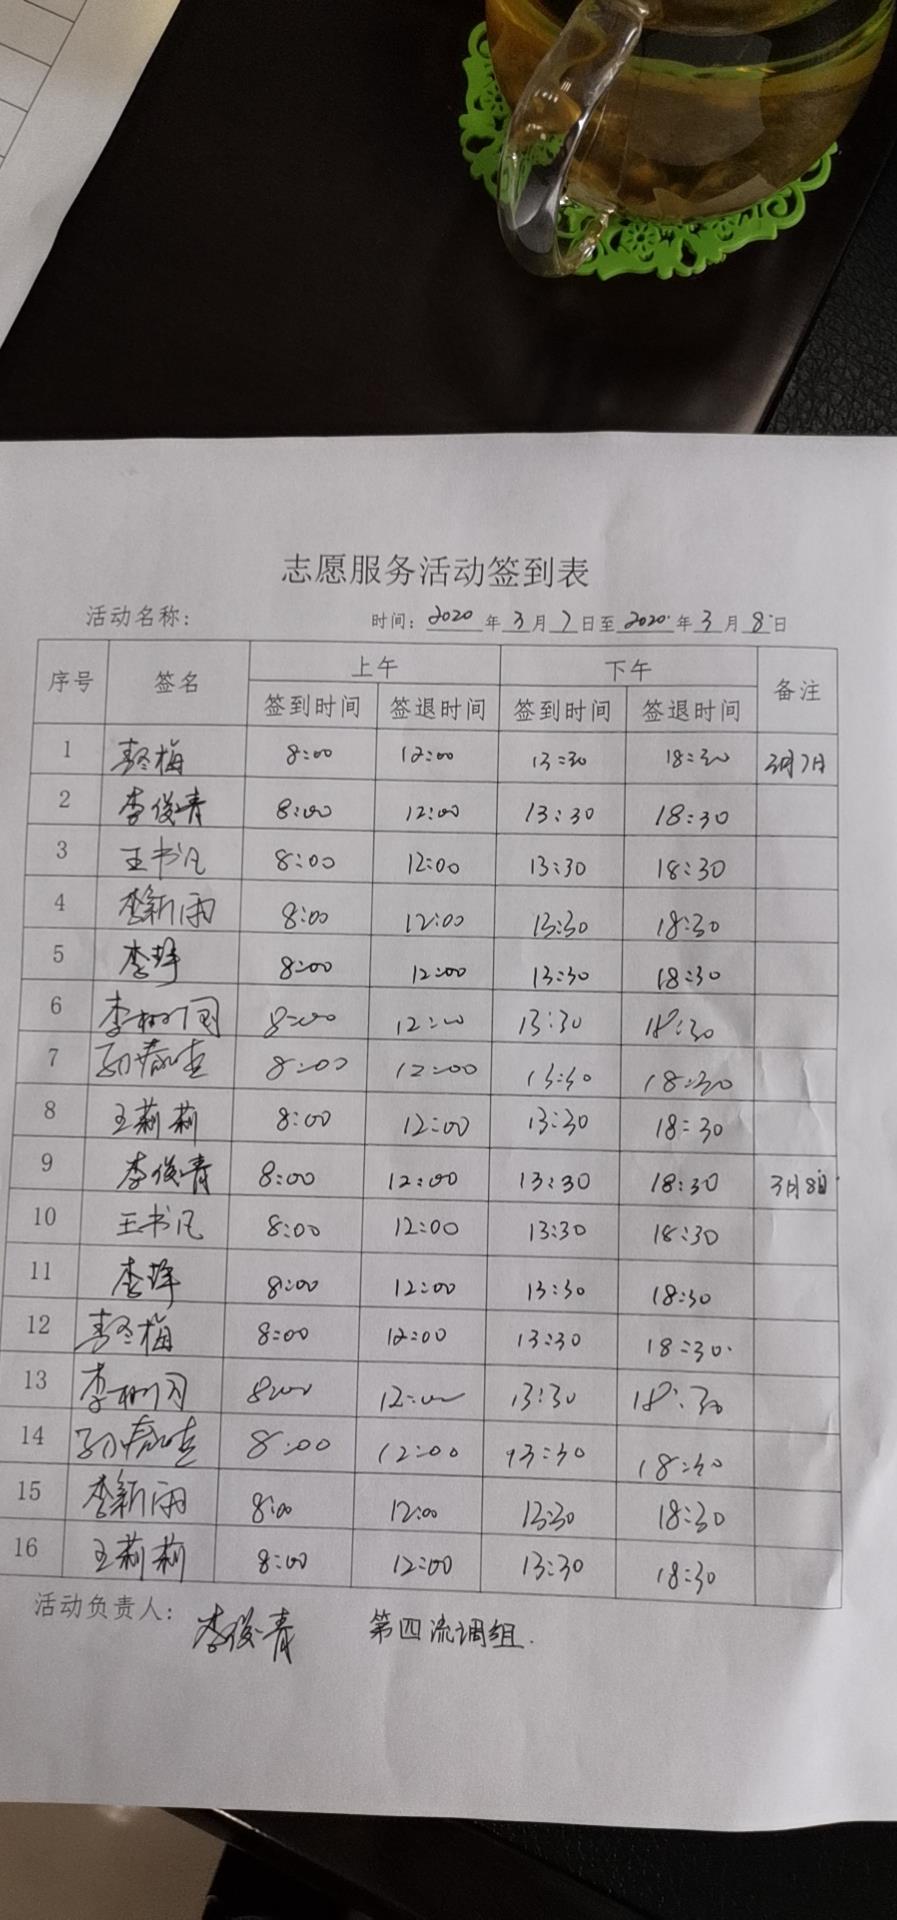 志愿服务活动签到表
活动名称: 时间: 2020 年 3 月 7 日至 2020 年 3 月 8 日
序号 签名 上午 下午 备注
签到时间 签退时间 签到时间 签退时间
1 8:00 12:00 13:30 18:30 3月7日
2 李俊青 8:00 12:00 13:30 18:30
3 王书凡 8:00 12:00 13:30 18:30
4 李新雨 8:00 12:00 13:30 18:30
5 李 8:00 12:00 13:30 18:30
6 李树 8:00 12:00 13:30 18:30
7 8:00 12:00 13:30 18:30
8 王莉莉 8:00 12:00 13:30 18:30
9 李俊青 8:00 12:00 13:30 18:30 3月8日
10 王书凡 8:00 12:00 13:30 18:30
11 李 8:00 12:00 13:30 18:30
12 8:00 12:00 13:30 18:30
13 李树 8:00 12:00 13:30 18:30
14 8:00 12:00 13:30 18:30
15 李新雨 8:00 12:00 13:30 18:30
16 王莉莉 8:00 12:00 13:30 18:30
活动负责人: 李俊青 第四流调组.